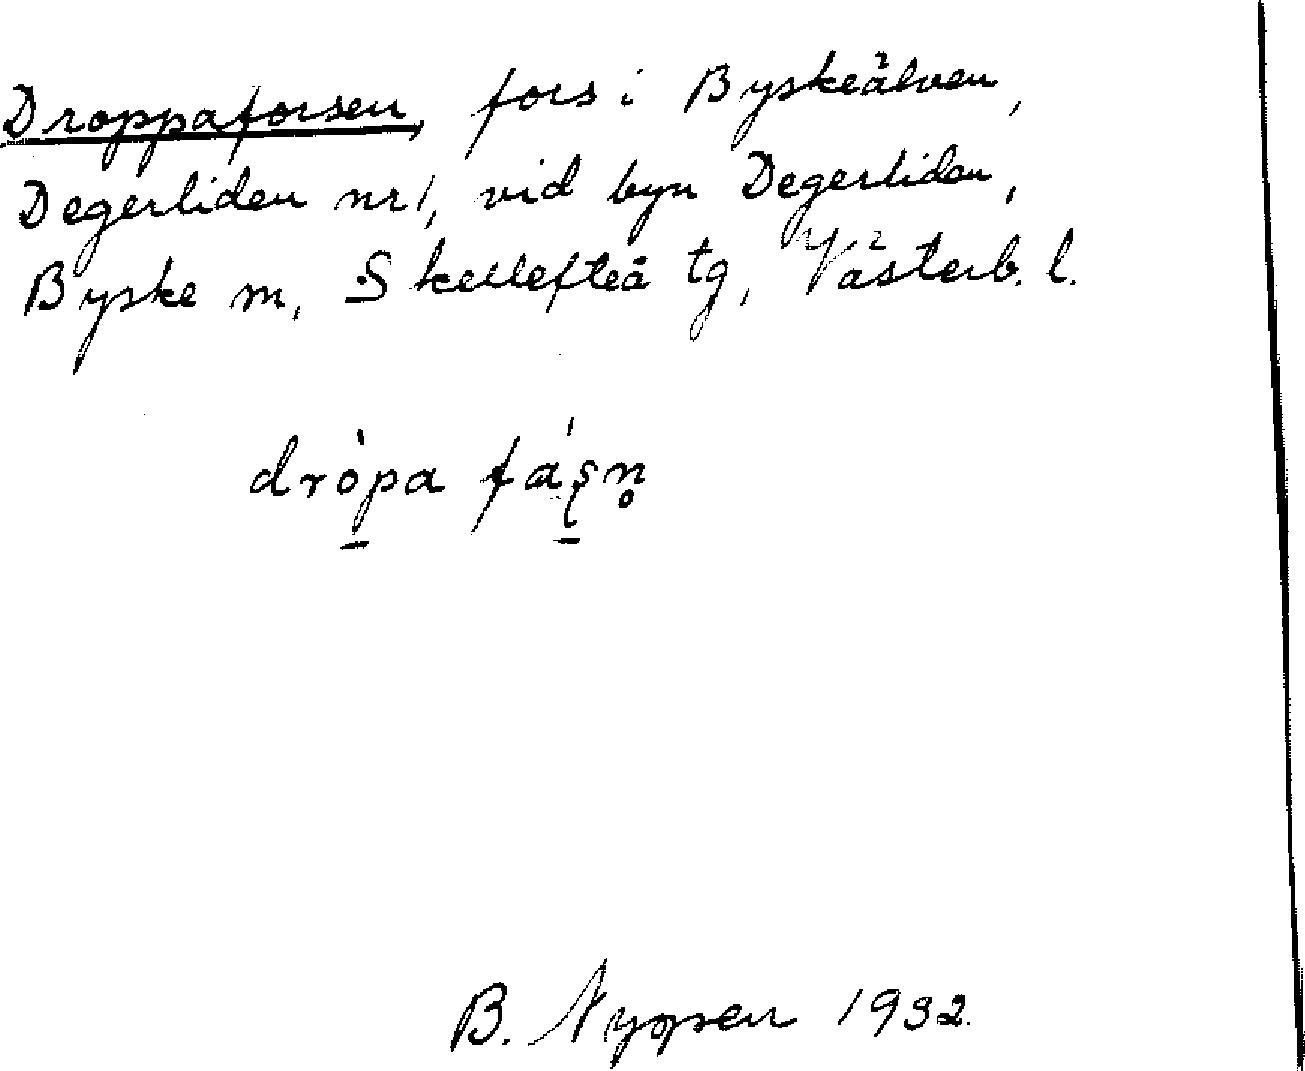 Droppaforsen, fors i Byskeälven,
Degerliden nr 1, vid byn Degerliden,
Byske sn, Skellefteå tg, Västerb. l.
dròpa fáṣn̥
B. 1932.